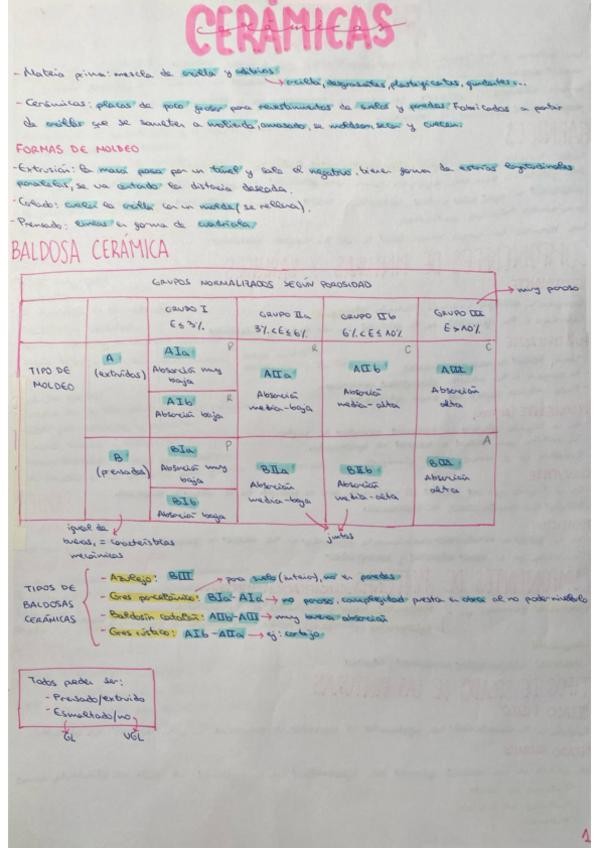 CERÁMICAS
cerámicas
- Materia prima: mezcla de arcilla y aditivos
→ arcilla, desgrasantes, plastificantes, fundentes...
- Cerámicas: placas de poco grosor para revestimientos de suelos y paredes. Fabricados a partir
de arcillas que se someten a molienda, amasado, se moldean, secan y cuecen.
FORMAS DE MOLDEO
- Extrusión: la masa pasa por un túnel y sale el negativo, tienen forma de estrías longitudinales
paralelas, se va cortando la distancia deseada.
- Colado: cuela la arcilla con un molde (se rellena).
- Prensado: líneas en forma de cuadrícula.
BALDOSA CERÁMICA
GRUPOS NORMALIZADOS SEGÚN POROSIDAD
→ muy poroso
GRUPO I GRUPO IIa GRUPO IIb GRUPO III
E≤3% 3%<E≤6% 6%<E≤10% E>10%
TIPO DE
MOLDEO
A
(extruidos)
AIa P
Absorción muy
baja
AIb R
Absorción baja
AIIa R
Absorción
media-baja
AIIb C
Absorción
media-alta
AIII C
Absorción
alta
B
(prensados)
BIa P
Absorción muy
baja
BIb
Absorción baja
BIIa
Absorción
media-baja
BIIb
Absorción
media-alta
BIII A
Absorción
alta
igual de
buenas, = características
mecánicas
juntas
TIPOS DE
BALDOSAS
CERÁMICAS
- Azulejo: BIII
para suelo (interior), no en paredes
- Gres porcelánico: BIa-AIa → no poroso, complejidad puesta en obra al no poder nivelarlo
- Baldosín catalán: AIIb-AIII → muy buena absorción
- Gres rústico: AIb-AIIa → ej: cortijo
Todos pueden ser:
- Prensado/extruido
- Esmaltado/no
GL UGL
1